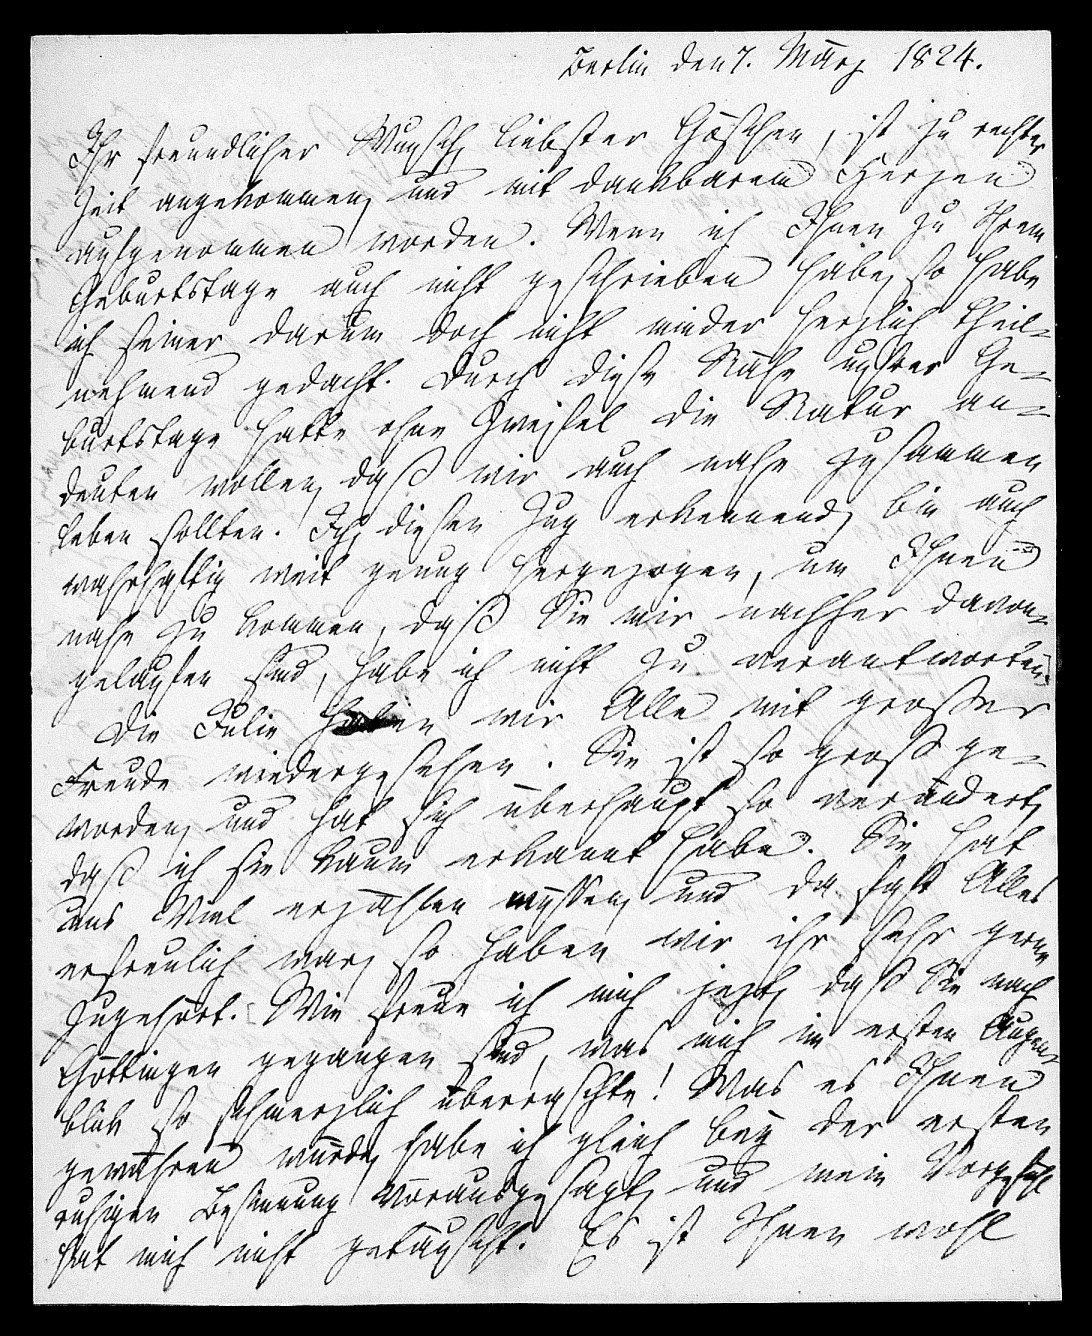 Berlin den 7. März 1824.
Ihr freundlicher Wunsch, liebster Göschen, ist zu rechter
Zeit angekommen, und mit dankbarem Herzen
aufgenommen worden. Wenn ich Ihnen zu Ihrem
Geburtstage auch nicht geschrieben habe, so habe
ich seiner darum doch nicht minder herzlich theil-
nehmend gedacht. Durch diese Nähe unsrer Ge-
burtstage hatte ohne Zweifel die Natur an-
deuten wollen, daß wir auch nahe zusammen
leben sollten. Ich, diesen Zug erkennend, bin auch
wahrhaftig weit genug hergezogen, um Ihnen
nahe zu kommen, daß Sie mir nachher davon-
gelaufen sind, habe ich nicht zu verantworten.
Die Julie haben wir Alle mit großer
Freude wiedergesehen. Sie ist so groß ge-
worden, und hat sich überhaupt so verändert,
daß ich sie kaum erkannt habe. Sie hat
uns Viel erzählen müssen, und da fast Alles
erfreulich war, so haben wir ihr sehr gerne
zugehört. [Wie freue ich mich jezt, daß Sie nach
Göttingen gegangen sind, was mich im ersten Augen-
blick so schmerzlich überraschte! Was es Ihnen
gewähren würde, habe ich gleich bey der ersten
ruhigen Besinnung vorausgesagt, und mein Vorgefühl
hat mich nicht getäuscht. Es ist Ihnen wohl